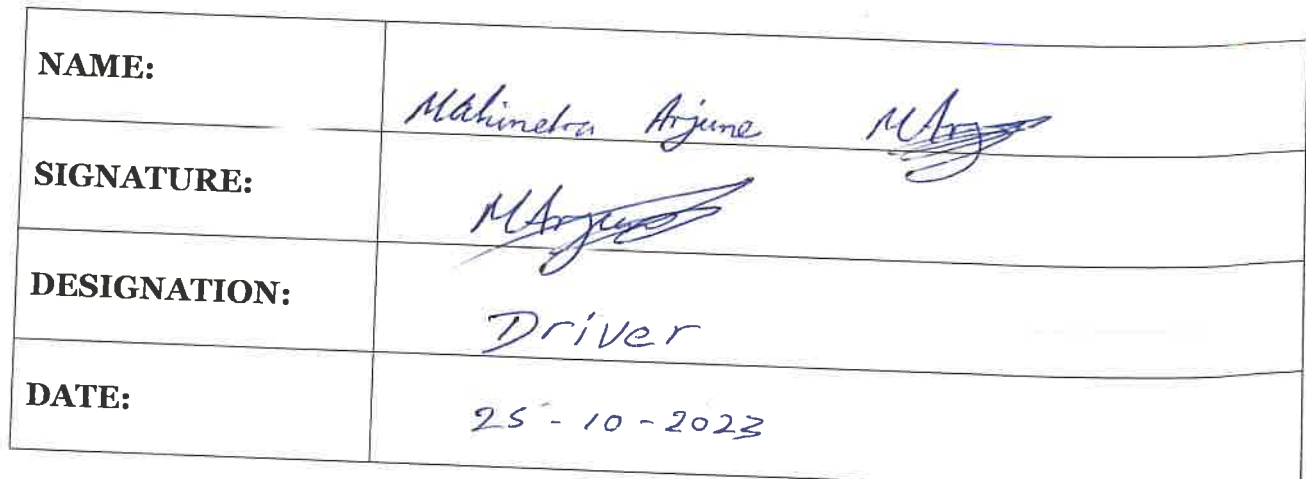 NAME: Mahindra Arjune MArju
SIGNATURE: MArjune
DESIGNATION: Driver
DATE: 25-10-2023